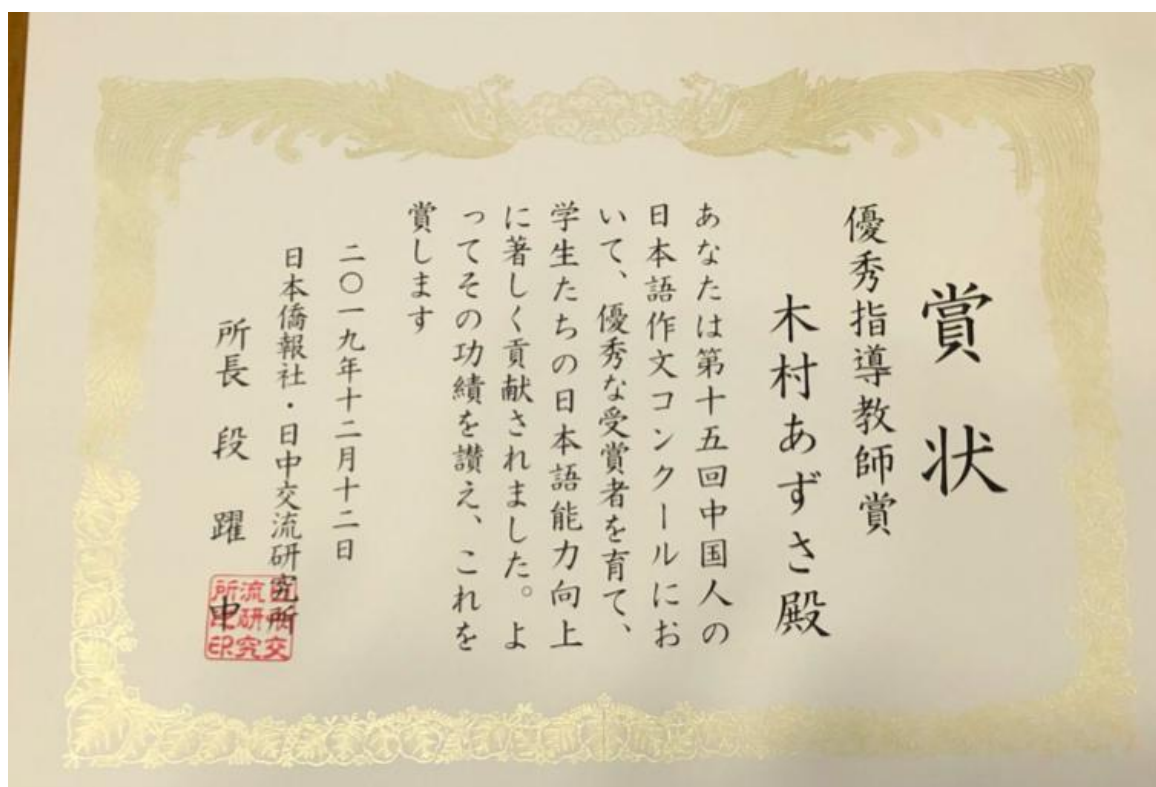 賞状
優秀指導教師賞
木村あずさ殿
あなたは第十五回中国人の
日本語作文コンクールにお
いて、優秀な受賞者を育て、
学生たちの日本語能力向上
に著しく貢献されました。よ
ってその功績を讃え、これを
賞します
二〇一九年十二月十二日
日本僑報社・日中交流研究所
所長 段 躍 中